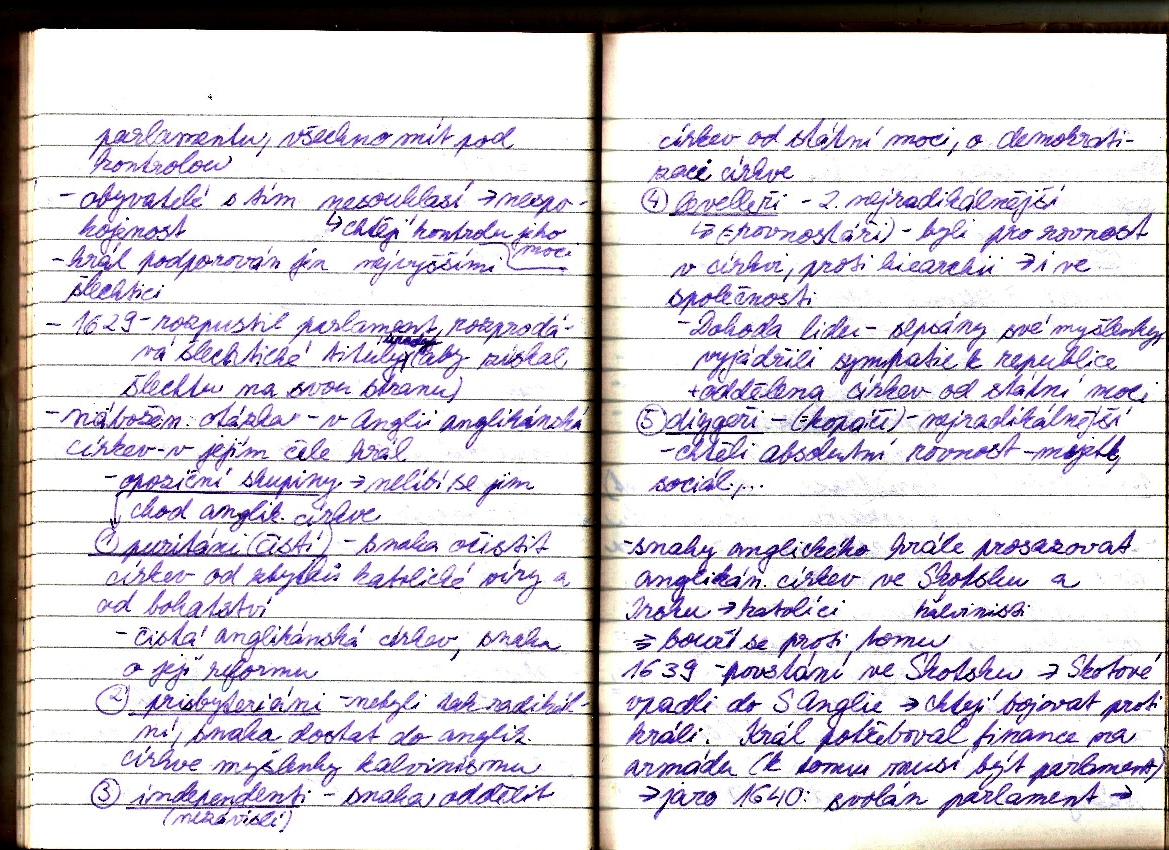 parlamentu, všechno mít pod
kontrolou
- obyvatelé s tím nesouhlasí → nespo-
kojenost
↳ chtějí kontrolu jeho
moci
- král podporován jen nejvyššími
šlechtici
- 1629 - rozpustil parlament, rozprodá-
vá šlechtické tituly, úřady (aby získal
šlechtu na svou stranu)
- nábožen. otázka - v Anglii anglikánská
církev - v jejím čele král
- opoziční skupiny → nelíbí se jim
chod anglik. církve
① puritáni (čistí) - snaha očistit
církev od zbytků katolické víry a
od bohatství
- čistá anglikánská církev, snaha
o její reformu
② prisbyteriáni - nebyli tak radikál-
ní, snaha dostat do anglik.
církve myšlenky kalvinismu
③ independenti - snaha oddělit
(nezávislí)
církev od státní moci, o demokrati-
zaci církve
④ levelleři - 2. nejradikálnější
↳ (=rovnostáři) - byli pro rovnost
v církvi, proti hiearchii → i ve
společnosti
- Dohoda lidu - sepsány své myšlenky,
vyjádřili sympatie k republice
+ oddělena církev od státní moci
⑤ diggeři - (=kopáči) - nejradikálnější
- chtěli absolutní rovnost - majetk,
sociál,..
- snahy anglického krále prosazovat
anglikán. církev ve Skotsku a
Irsku → katolíci kalvinisti
⇒ bouří se proti tomu
1639 - povstání ve Skotsku → Skotové
vpadli do S Anglie → chtějí bojovat proti
králi. Král potřeboval finance na
armádu (k tomu musí být parlament)
→ jaro 1640: svolán parlament →